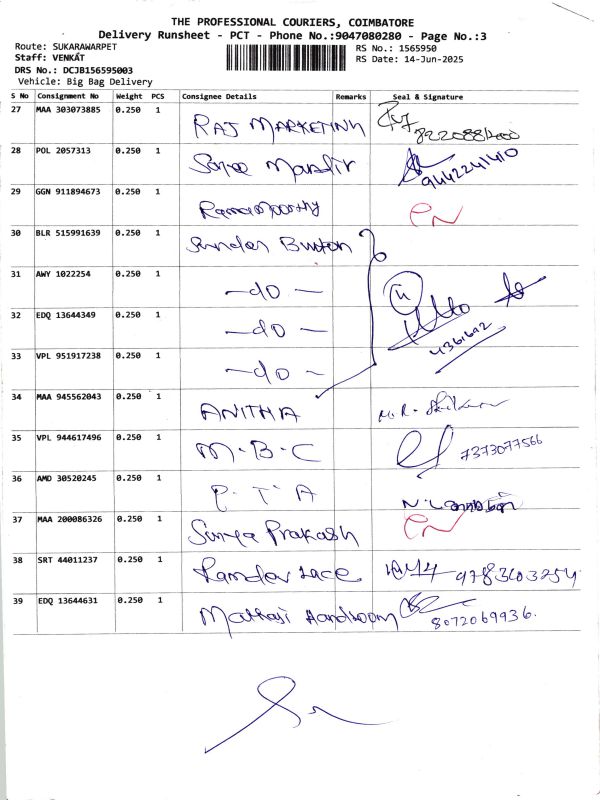 THE PROFESSIONAL COURIERS, COIMBATORE
Delivery Runsheet - PCT - Phone No.:9047080280 - Page No.:3
Route: SUKARAWARPET
RS No.: 1565950
Staff: VENKAT
RS Date: 14-Jun-2025
DRS No.: DCJB156595003
Vehicle: Big Bag Delivery
S No Consignment No Weight PCS Consignee Details Remarks Seal & Signature
27 MAA 303073885 0.250 1 RAJ MARKETING
28 POL 2057313 0.250 1 9442241410
29 GGN 911894673 0.250 1 Ramamoorthy
30 BLR 515991639 0.250 1 Sundar Button
31 AWY 1022254 0.250 1 -do-
32 EDQ 13644349 0.250 1 -do-
33 VPL 951917238 0.250 1 -do- 4361692
34 MAA 945562043 0.250 1 ANITHA
35 VPL 944617496 0.250 1 M.B.C 7373077566
36 AMD 30520245 0.250 1 P.T.A
37 MAA 200086326 0.250 1 Surya Prakash
38 SRT 44011237 0.250 1 Ramdev Lace
39 EDQ 13644631 0.250 1 Handloom 8072069936.